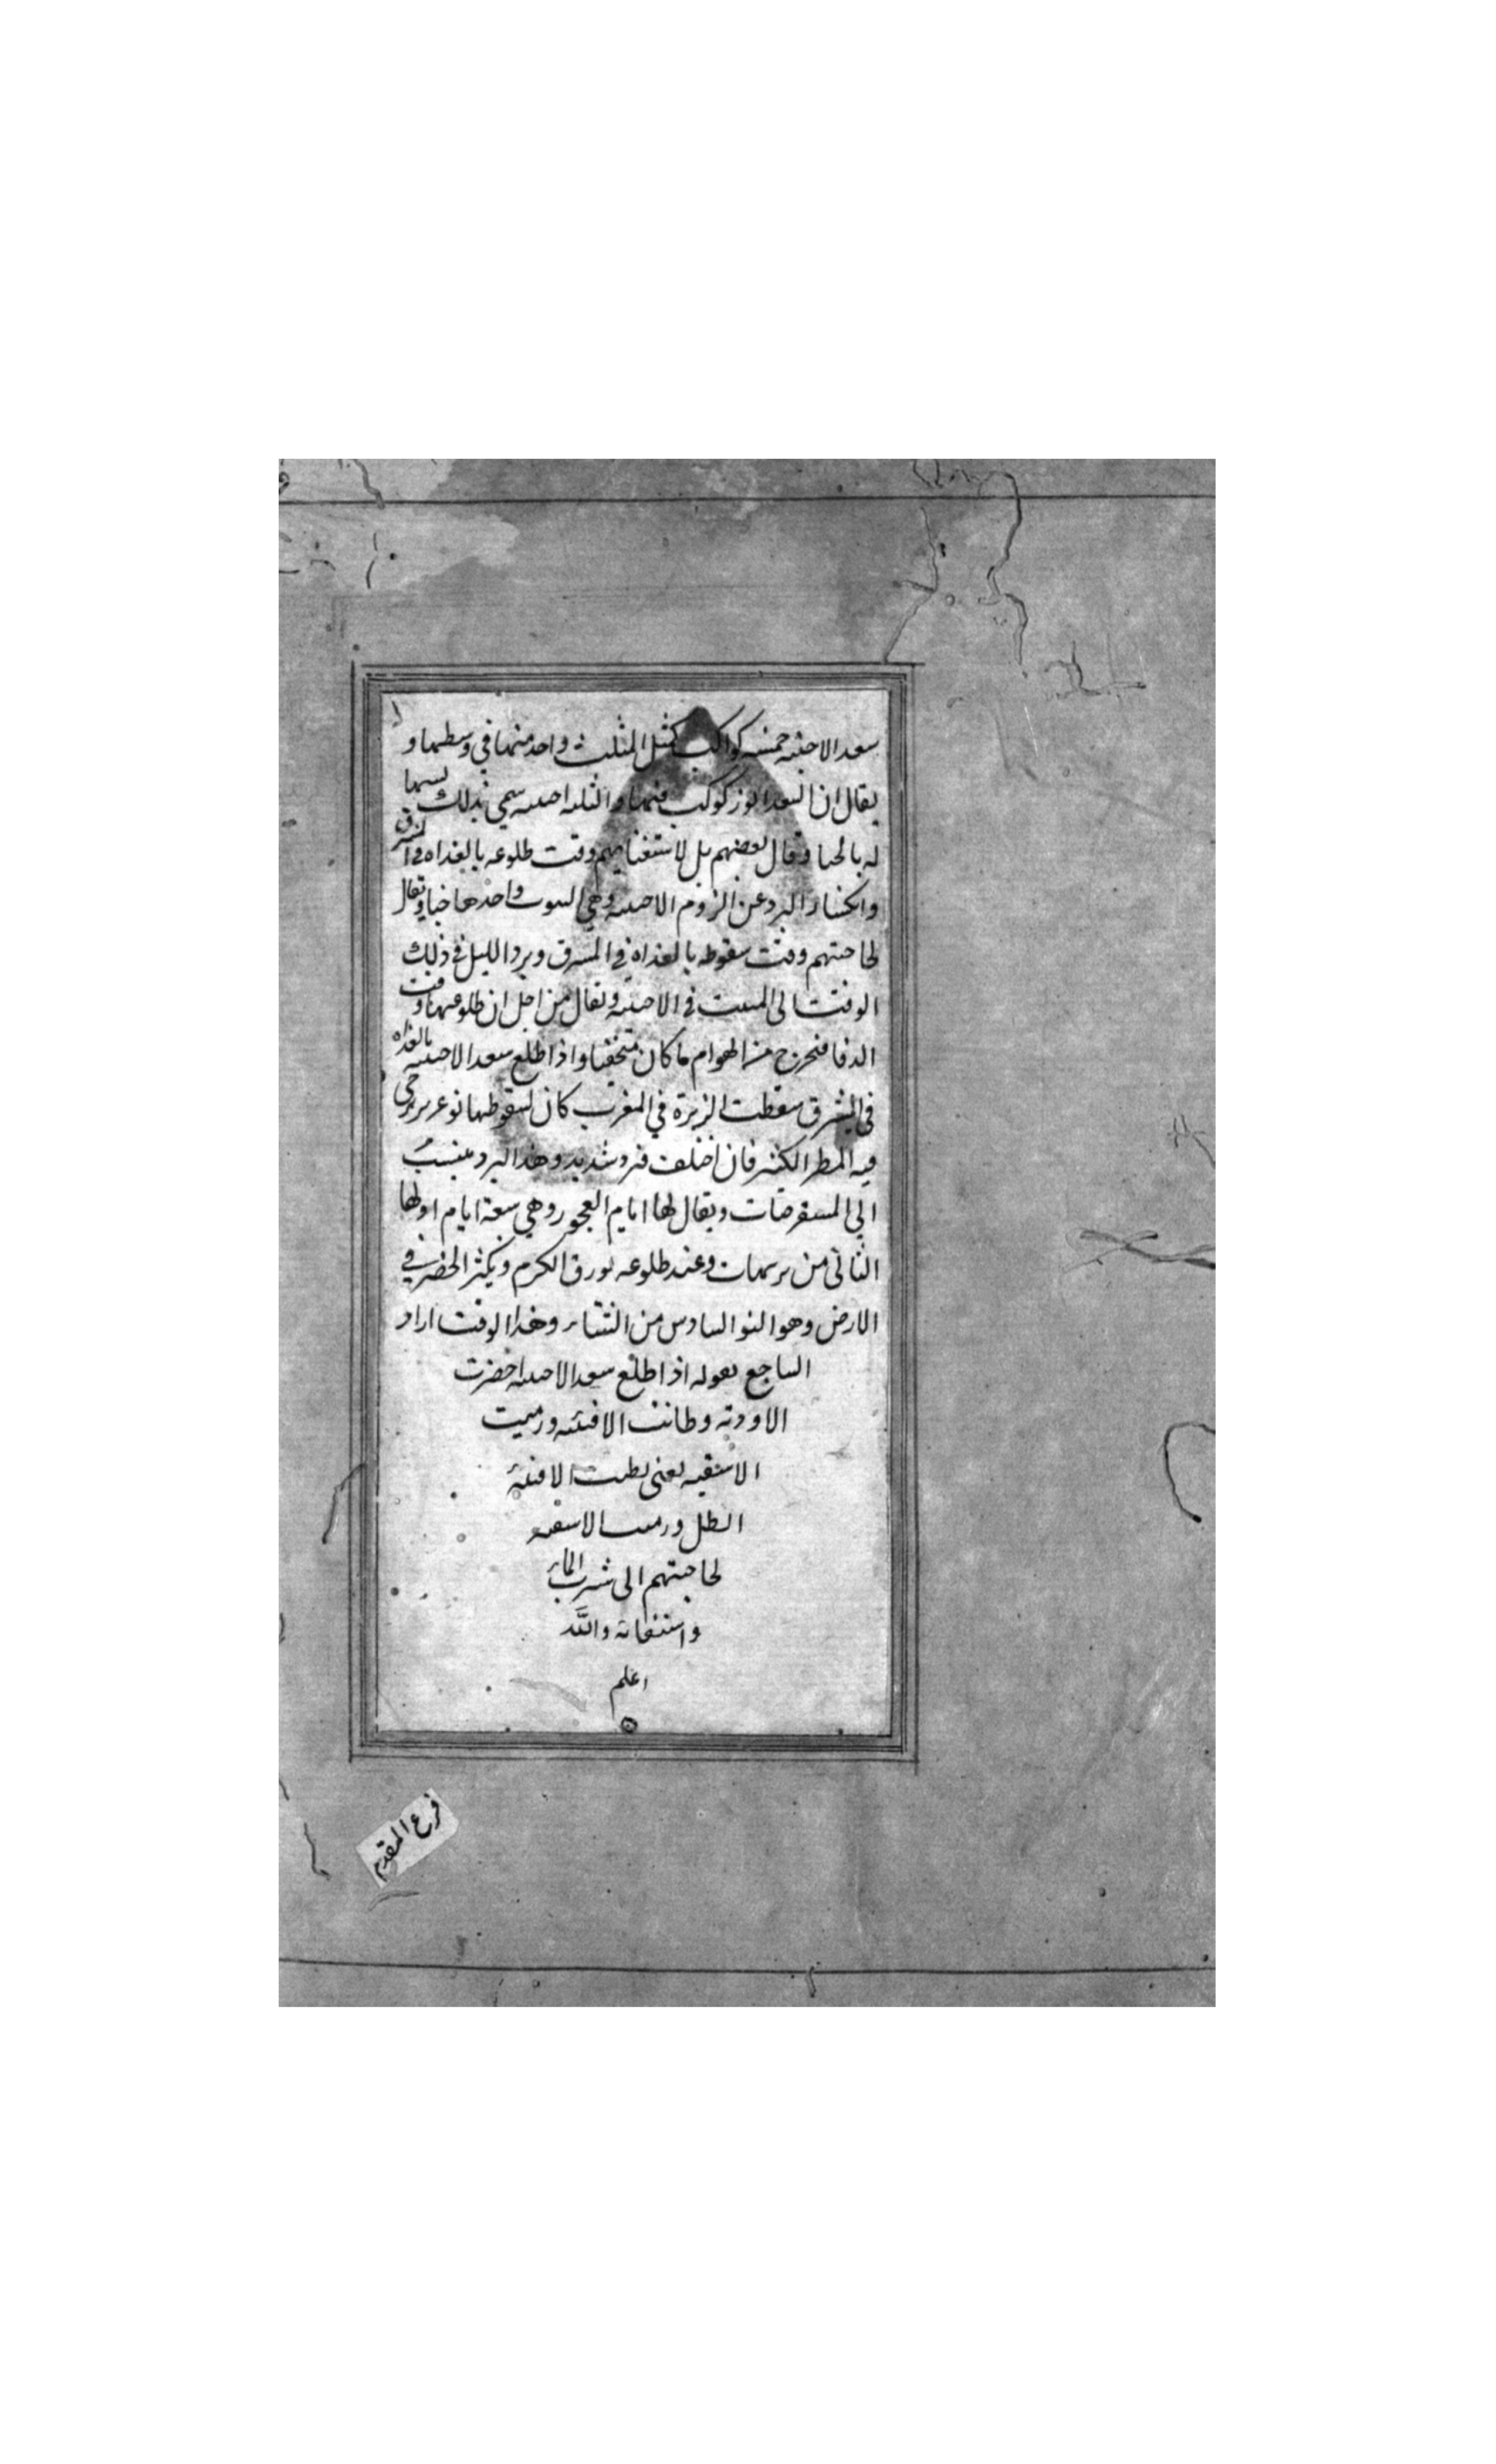 سعد الاخبيه خمسه كواكب كمثل المثلث واحد منها في وسطها و
يقال ان السعد انور كوكب فيها والثلثه اخبيه سمي بذلك تسبيها
له بالخبا وقال بعضهم بل لاستغنايهم وقت طلوعه بالغداه في المشرق
وانكسار البرد عن الزوم الاخبيه وهي البيوت واحدها خبا ويقال
لحاجتهم وقت سقوطه بالغداه في المشرق وبرد الليل في ذلك
الوقت الى المبيت في الاخبيه ويقال من اجل ان طلوعها وقت
الدفا فيخرج من الهوام ما كان متخفيا واذا طلع سعد الاخبيه بالغداه
في المشرق سقطت الزبرة في المغرب كان لسقوطها نوء يرجى
فيه المطر الكثير فان اخلف فبرد شديد وهذا البرد ينسب
الي المستقرضات ويقال لها ايام العجوز وهي سبعة ايام اولها
الثاني من برمهات وعند طلوعه يورق الكرم ويكثر الخضر في
الارض وهو النو السادس من الشتاء وهذا الوقت اراد
الساجع بقوله اذا طلع سعد الاخبيه اخضرت
الاوديه وطابت الافنيه ورميت
الاسقيه يعنى بطيب الافنيه
الظل ورميت الاسقيه
لحاجتهم الى شرب الماء
واستقائه والله
اعلم
فرع المقدم